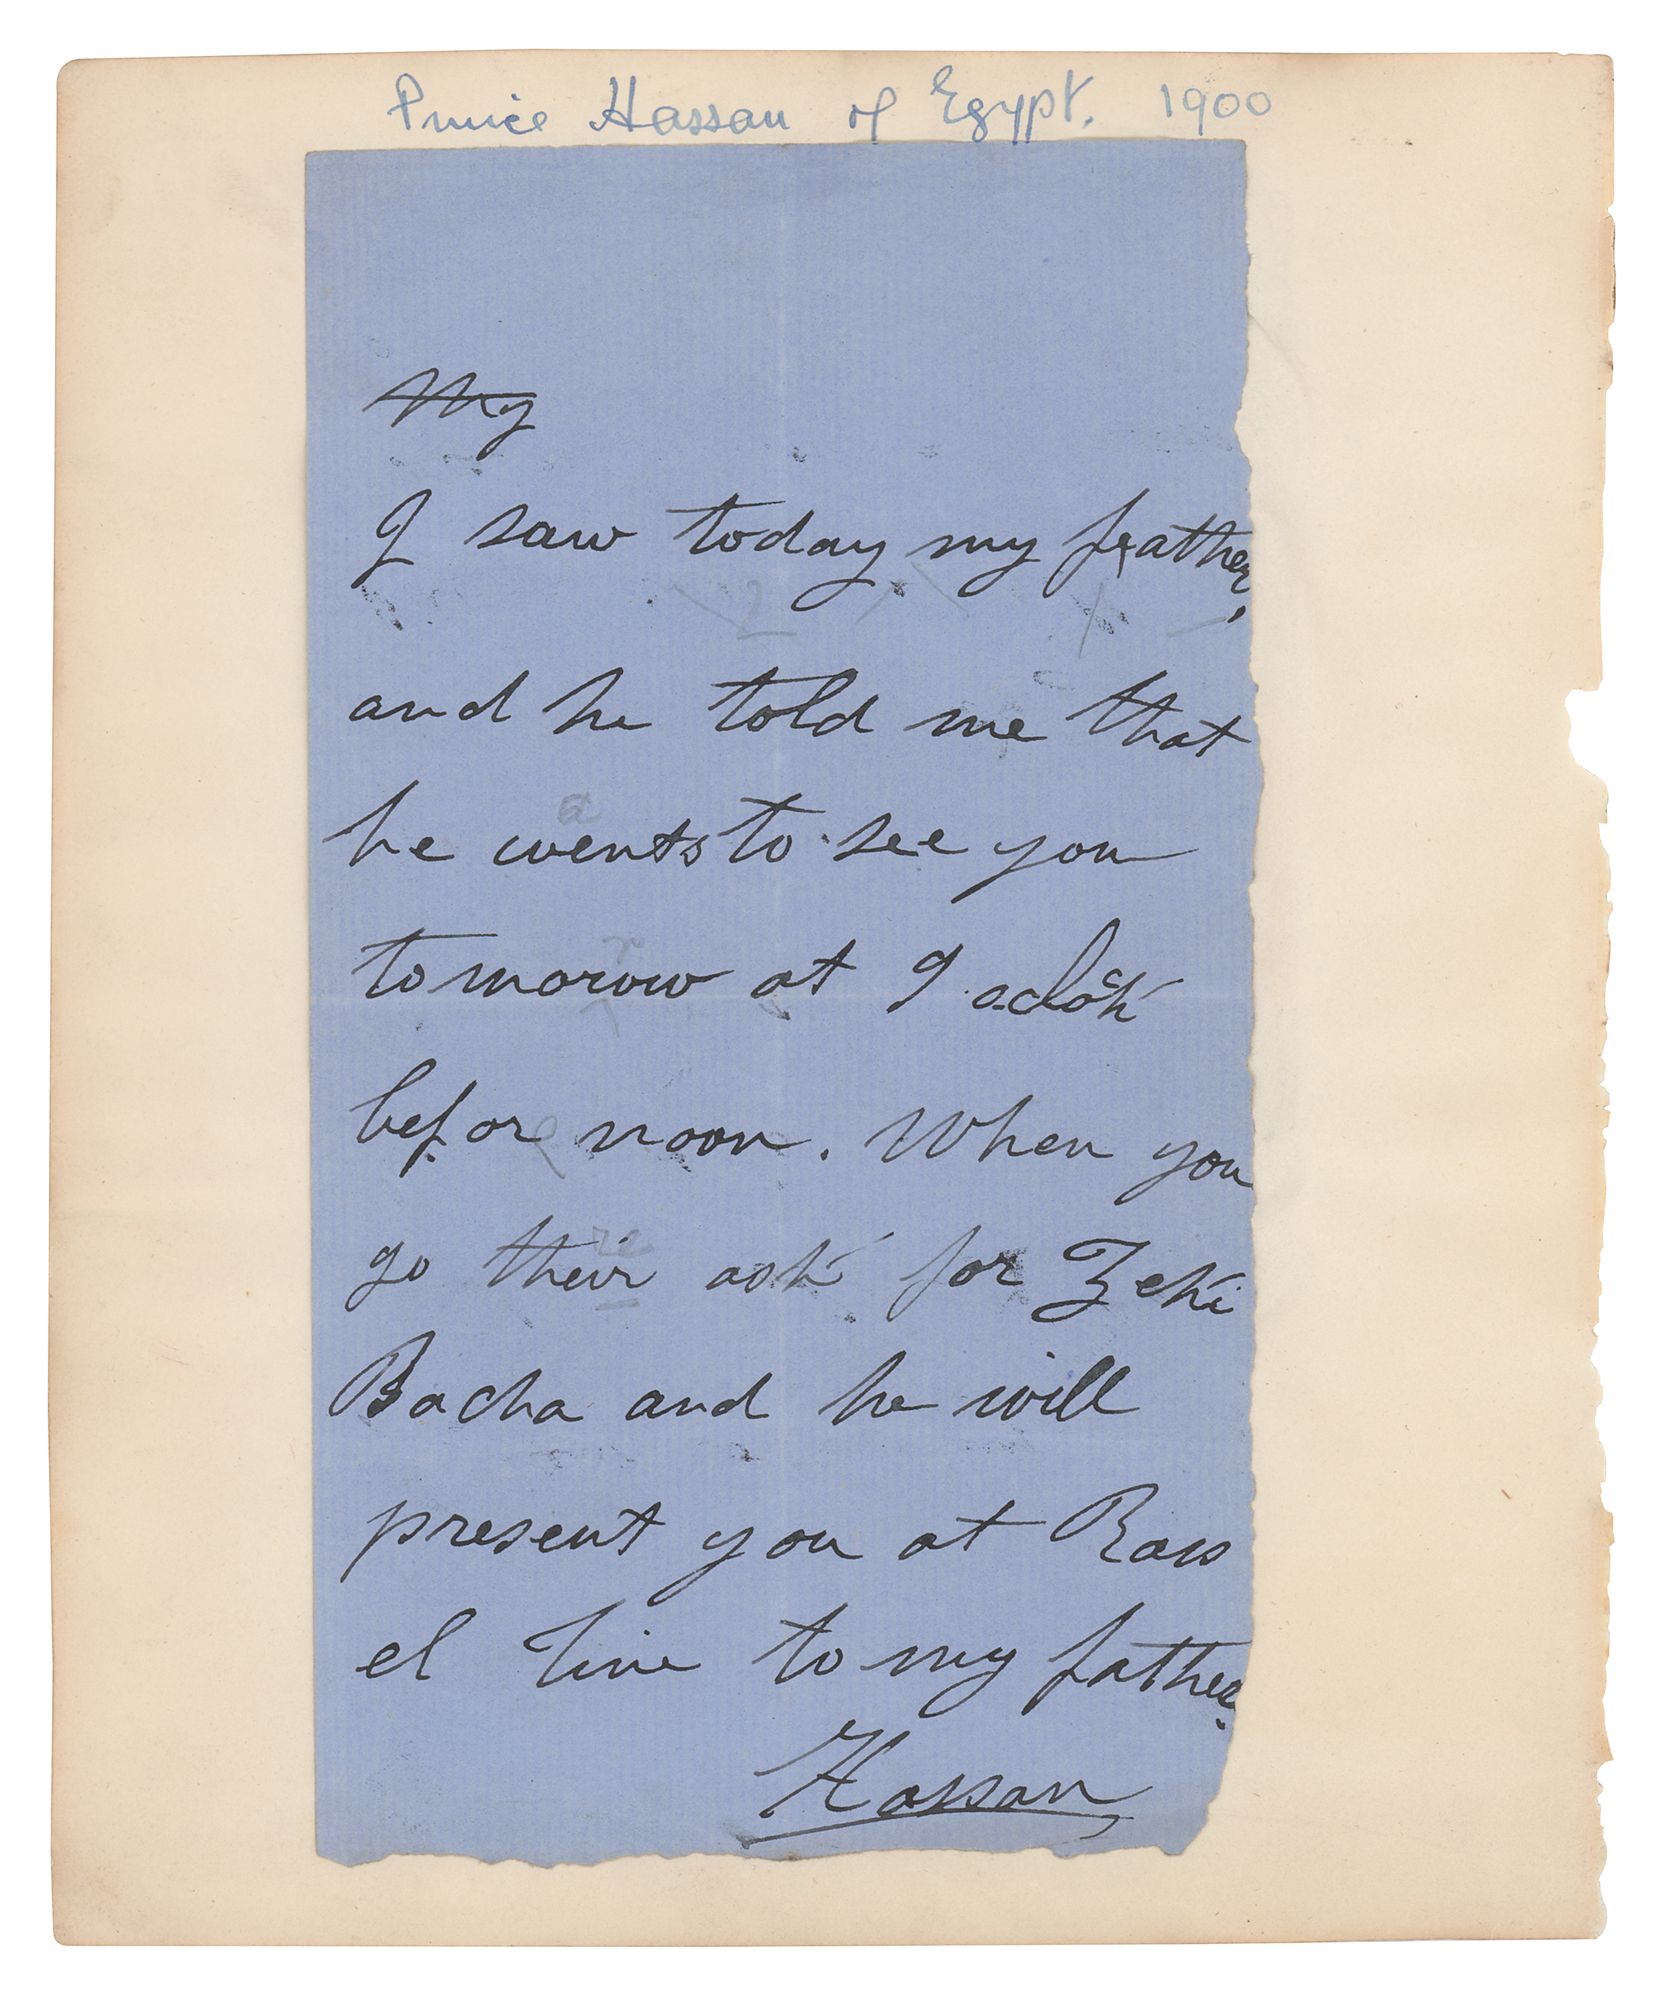 Prince Hassan of Egypt. 1900
My
I saw today my father,
and he told me that
he wents to see you
tomorow at 9 aclock
befor noon. When you
go their ask for Zeki
Bacha and he will
present you at Rass
el Tine to my father.
Hassan